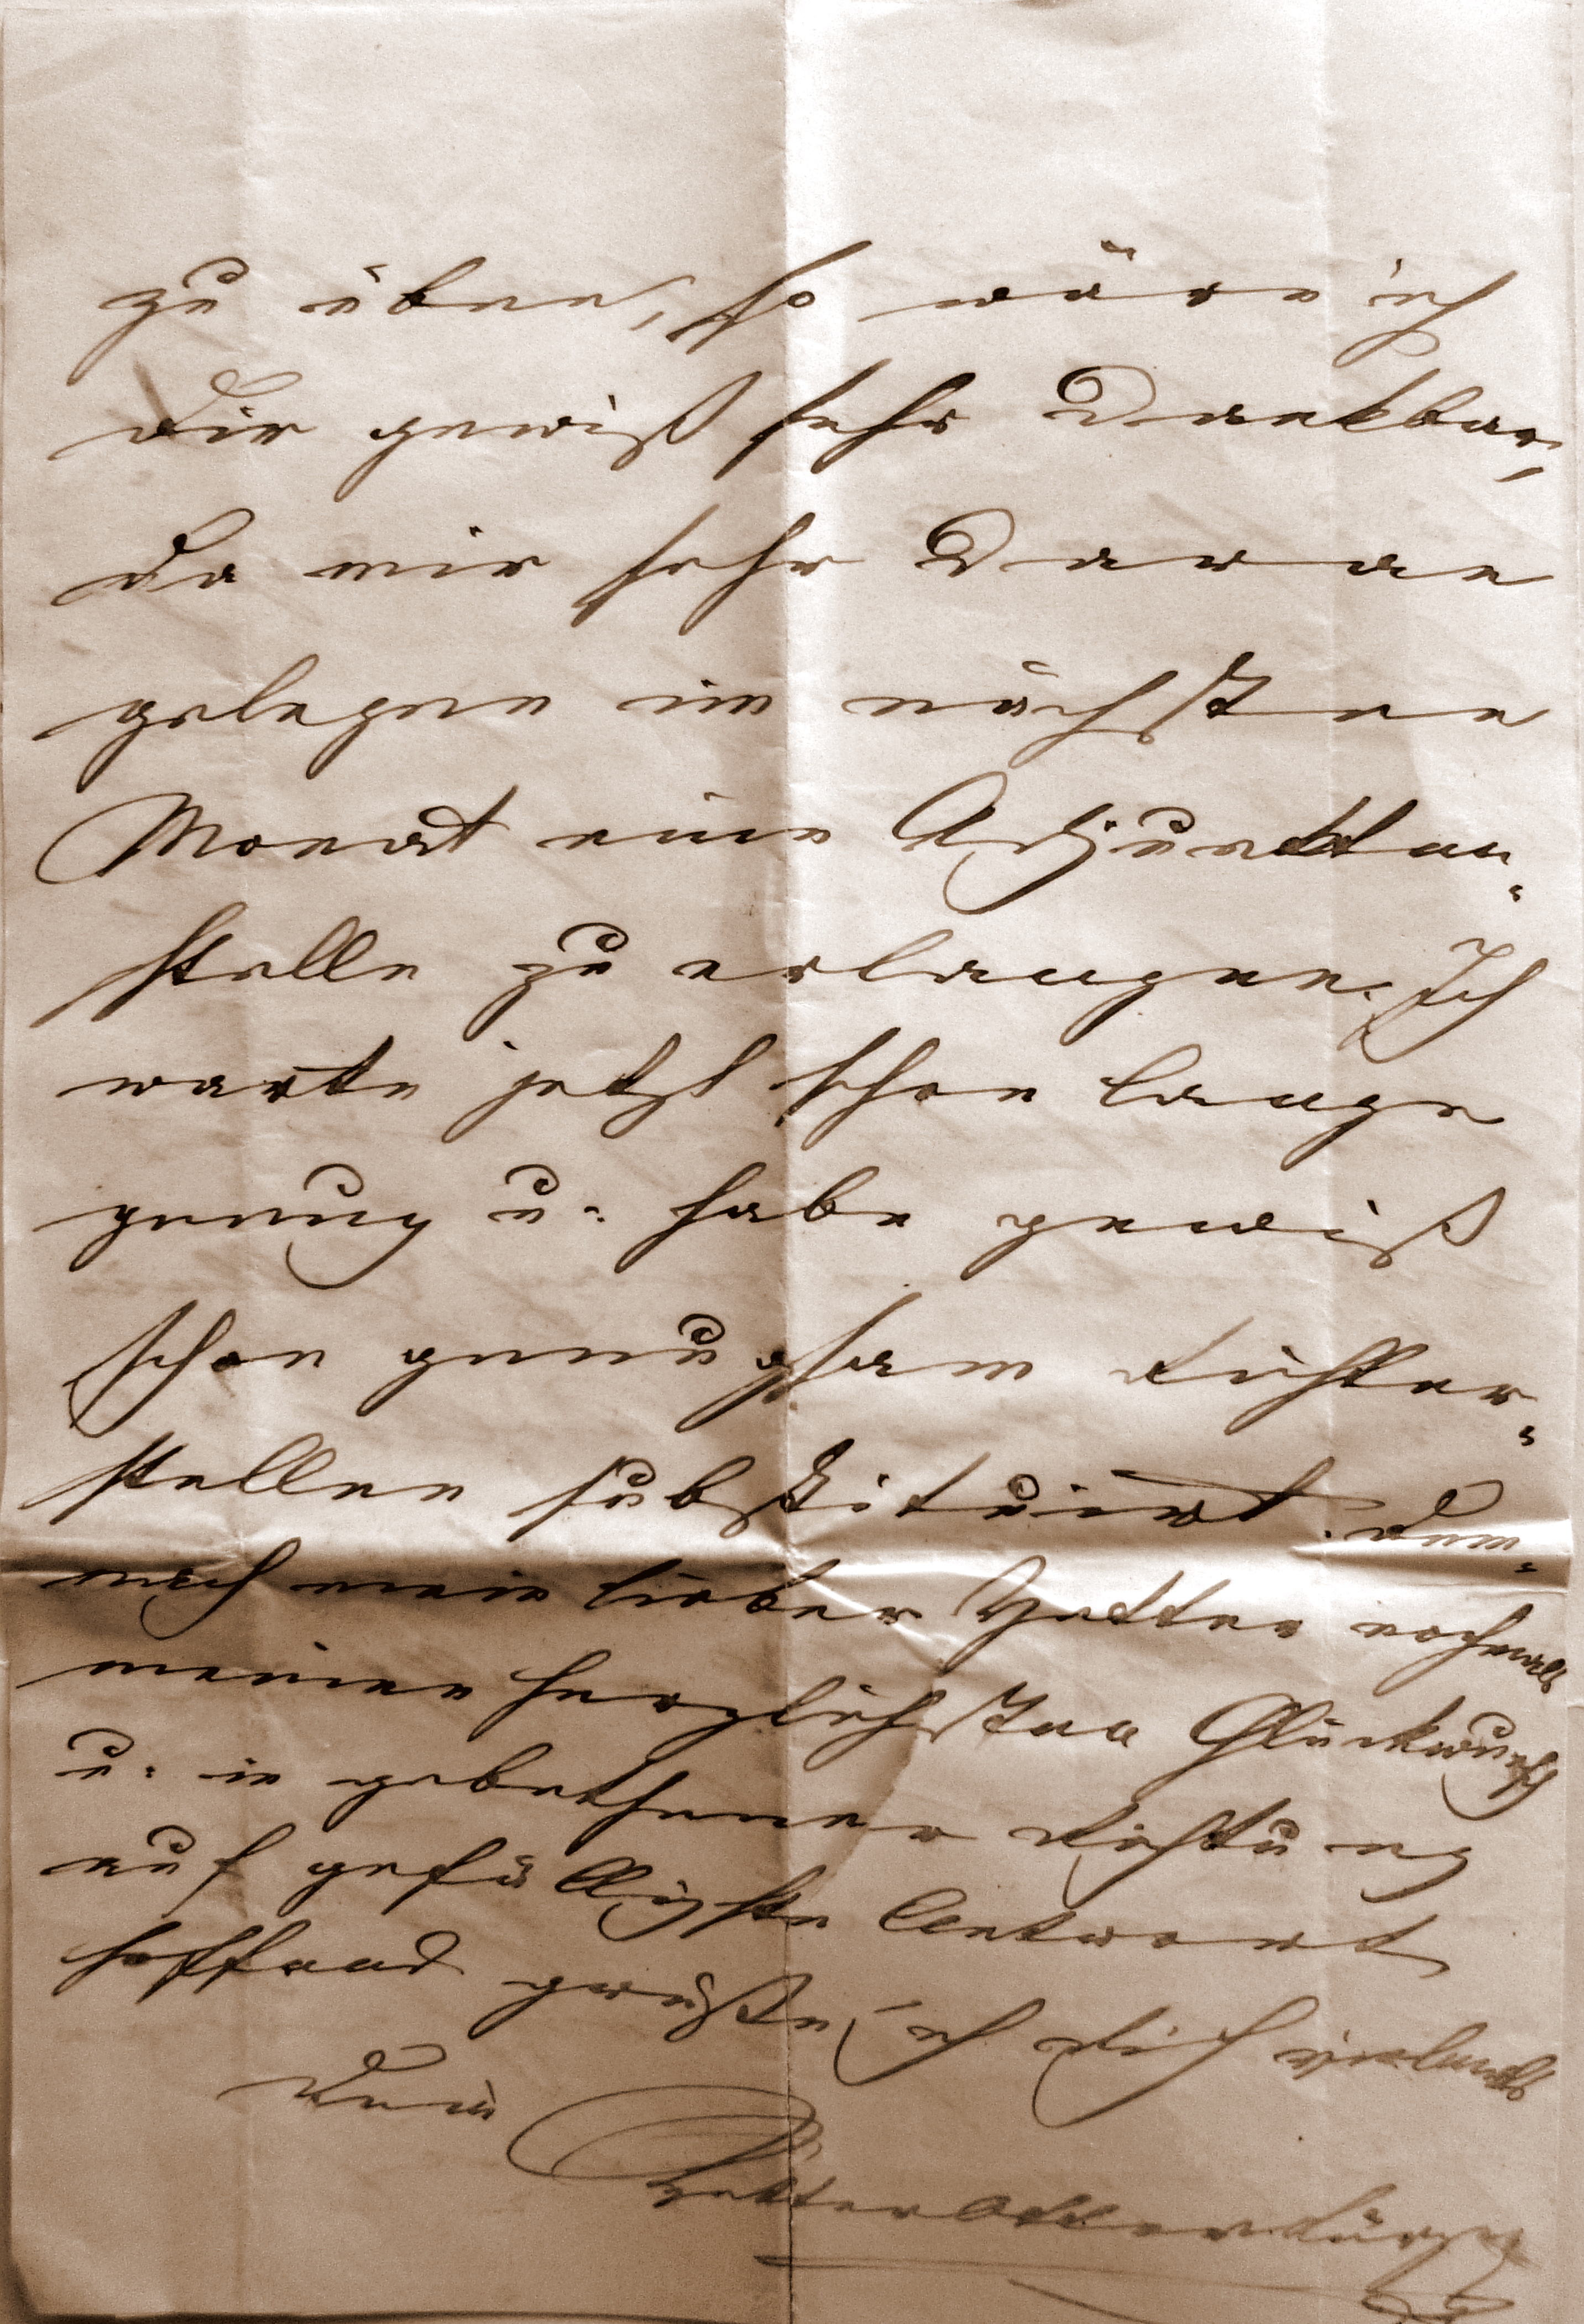 zu üben, so wäre ich
Dir gewiß sehr Dankbar,
da mir sehr Daran
gelegen im nächsten
Monat eine Adjunkten-
stelle zu erlangen. Ich
warte jetzt schon lange
genug u. habe gewiß
schon genugsam Richter-
stellen substituirt. Dem-
nach mein lieber Vetter nochmals
meinen herzlichsten Glückwunsch
u. in gebethener Richtung
auf gefälligste Antwort
hoffend grüßte ich Dich vielmals
Dein
Vetter